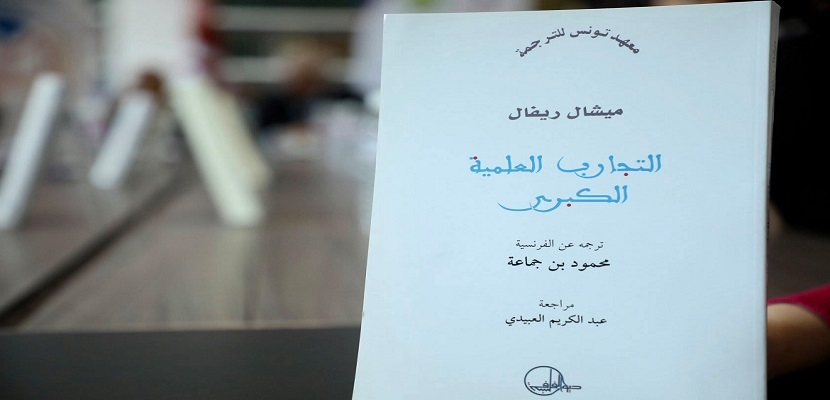 معهد تونس للترجمة
ميشال ريفال
التجارب العلمية
الكبرى
ترجمه عن الفرنسية
محمود بن جماعة
مراجعة
عبد الكريم العبيدي